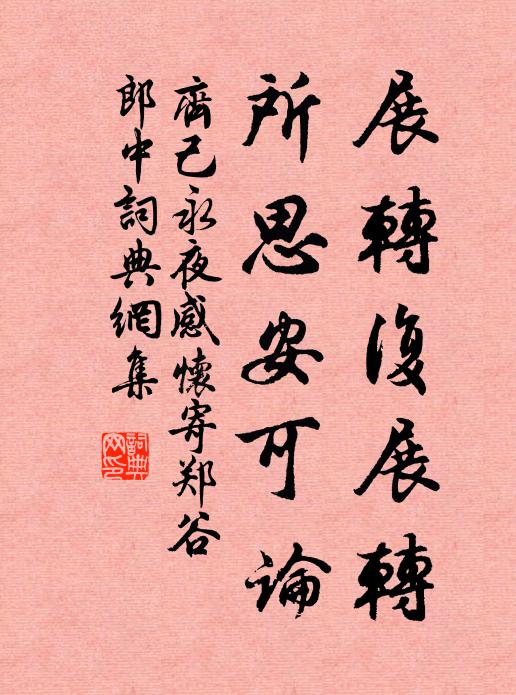 展轉復展轉
所思安可論
齊己永夜感懷寄郑谷
郎中詞典網集
詞典
网印